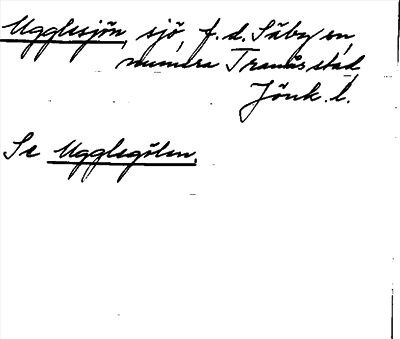 Ugglesjön, sjö, f. d. Säby sn,
numera Tranås stad,
Jönk. l.
Se Ugglegölen.